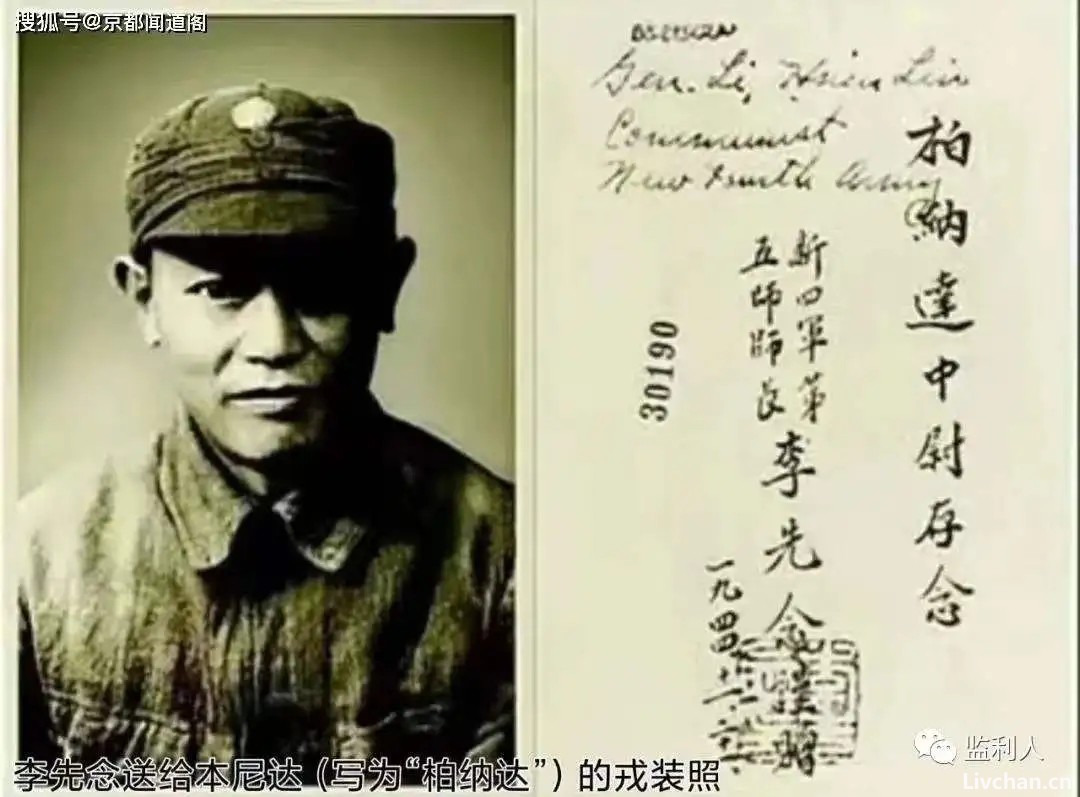 搜狐号@京都闻道阁
Gen. Li, Hsien Lien
Communist
New Fourth Army
柏納達中尉存念
新四軍第
五師師長
李先念謹贈
一九四四
30190
李先念送给本尼达（写为“柏纳达”）的戎装照
监利人
Livchan.cn